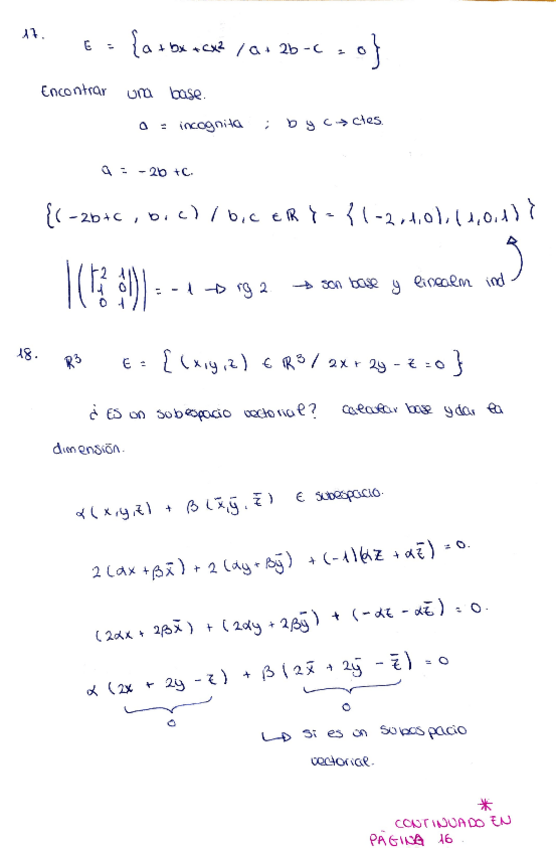 17.
E = {a + bx + cx² / a + 2b - c = 0}
Encontrar una base.
a = incognita ; b y c → ctes.
a = -2b + c.
{(-2b+c, b, c) / b,c ∈ R} = {(-2,1,0), (1,0,1)}
|(|-2 1| |1 0| 0 1)| = -1 → rg 2 → son base y linealm ind
18. R³ E = {(x,y,z) ∈ R³ / 2x + 2y - z = 0}
¿ Es un subespacio vectorial? Calcular base y dar la
dimensión.
α(x,y,z) + β(x̄,ȳ,z̄) ∈ subespacio.
2(αx + βx̄) + 2(αy + βȳ) + (-1)(αz + αz̄) = 0.
(2αx + 2βx̄) + (2αy + 2βȳ) + (-αz - αz̄) = 0.
α(2x + 2y - z) + β(2x̄ + 2ȳ - z̄) = 0
0 0
↳ si es un subespacio
vectorial.
*
CONTINUADO EN
PÁGINA 16.